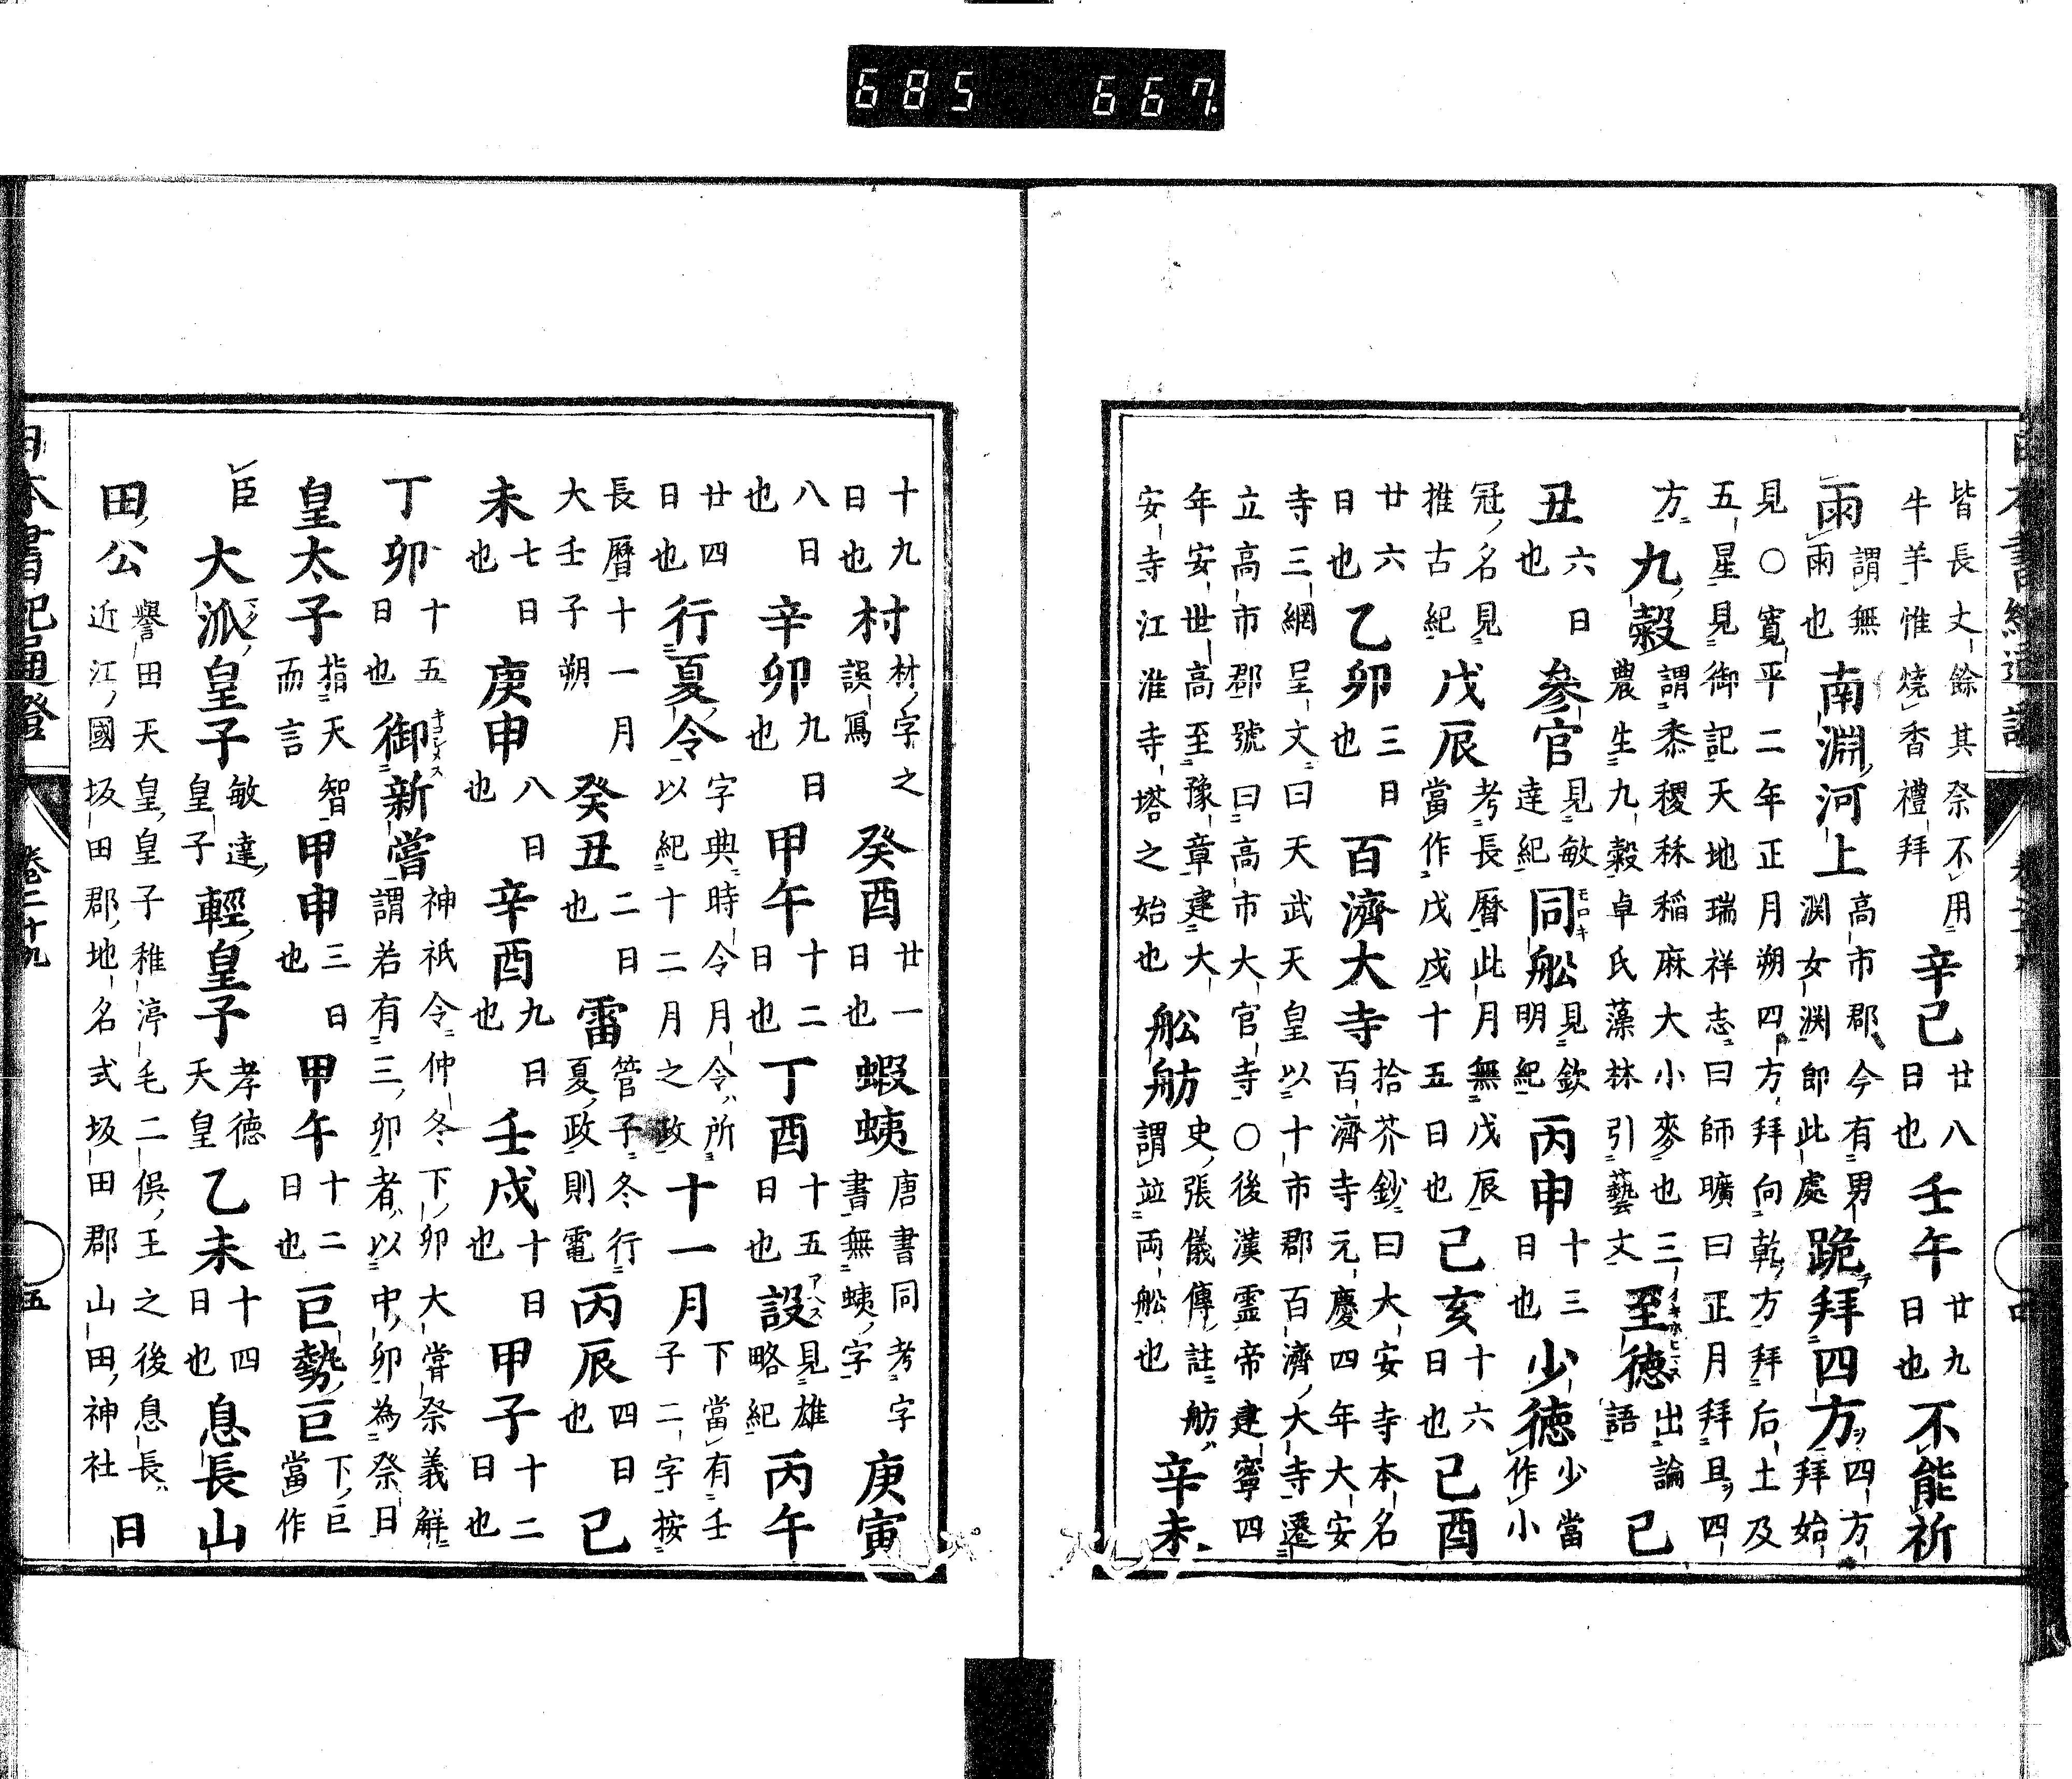 日本書紀通證
皆長丈餘其祭不用牛羊惟燒香禮拜辛巳廿八日也壬午廿九日也不能祈
雨謂無雨也南淵河上高市郡今有男渕女渕即此處跪拜四方四方拜始
見○寬平二年正月朔四方拜向乾方拜后土及五星見御記天地瑞祥志曰師曠曰正月拜旦四
方九穀謂黍稷秫稲麻大小麥也三農生九穀卓氏藻林引藝文至德出論語己
丑六日也參官見敏達紀同舩モロキ見欽明紀丙申十三日也少徳少當作小
冠名見推古紀戊辰考長曆此月無戊辰當作戊戌十五日也己亥十六日也己酉
廿六日也乙卯三日也百濟大寺拾芥鈔曰大安寺本名百濟寺元慶四年大安
寺三網呈文曰天武天皇以十市郡百濟大寺遷立高市郡號曰高市大官寺○後漢靈帝建寧四
年安世高至豫章建大安寺江淮寺塔之始也舩舫史張儀傳註舫謂並両舩也辛未
十九日也村材字之誤寫癸酉廿一日也蝦蛦唐書同考字書無蛦字庚寅
八日也辛卯九日也甲午十二日也丁酉十五日也設アヘス見雄略紀丙午
廿四日也行夏令字典時令月令所以紀十二月之政十一月下當有壬子二字按
長曆十一月大壬子朔癸丑二日也雷管子冬行夏政則電丙辰四日也己
未七日也庚申八日也辛酉九日也壬戌十日也甲子十二日也
丁卯十五日也御新嘗キコシメス神祇令仲冬下卯大嘗祭義解謂若有三卯者以中卯為祭日
皇太子指天智而言甲申三日也甲午十二日也巨勢巨下巨當作
臣大派皇子敏達皇子輕皇子孝徳天皇乙未十四日也息長山
田公譽田天皇皇子稚渟毛二俣王之後息長近江國坂田郡地名式坂田郡山田神社日
日本書紀通證 卷二十九 五
685 667